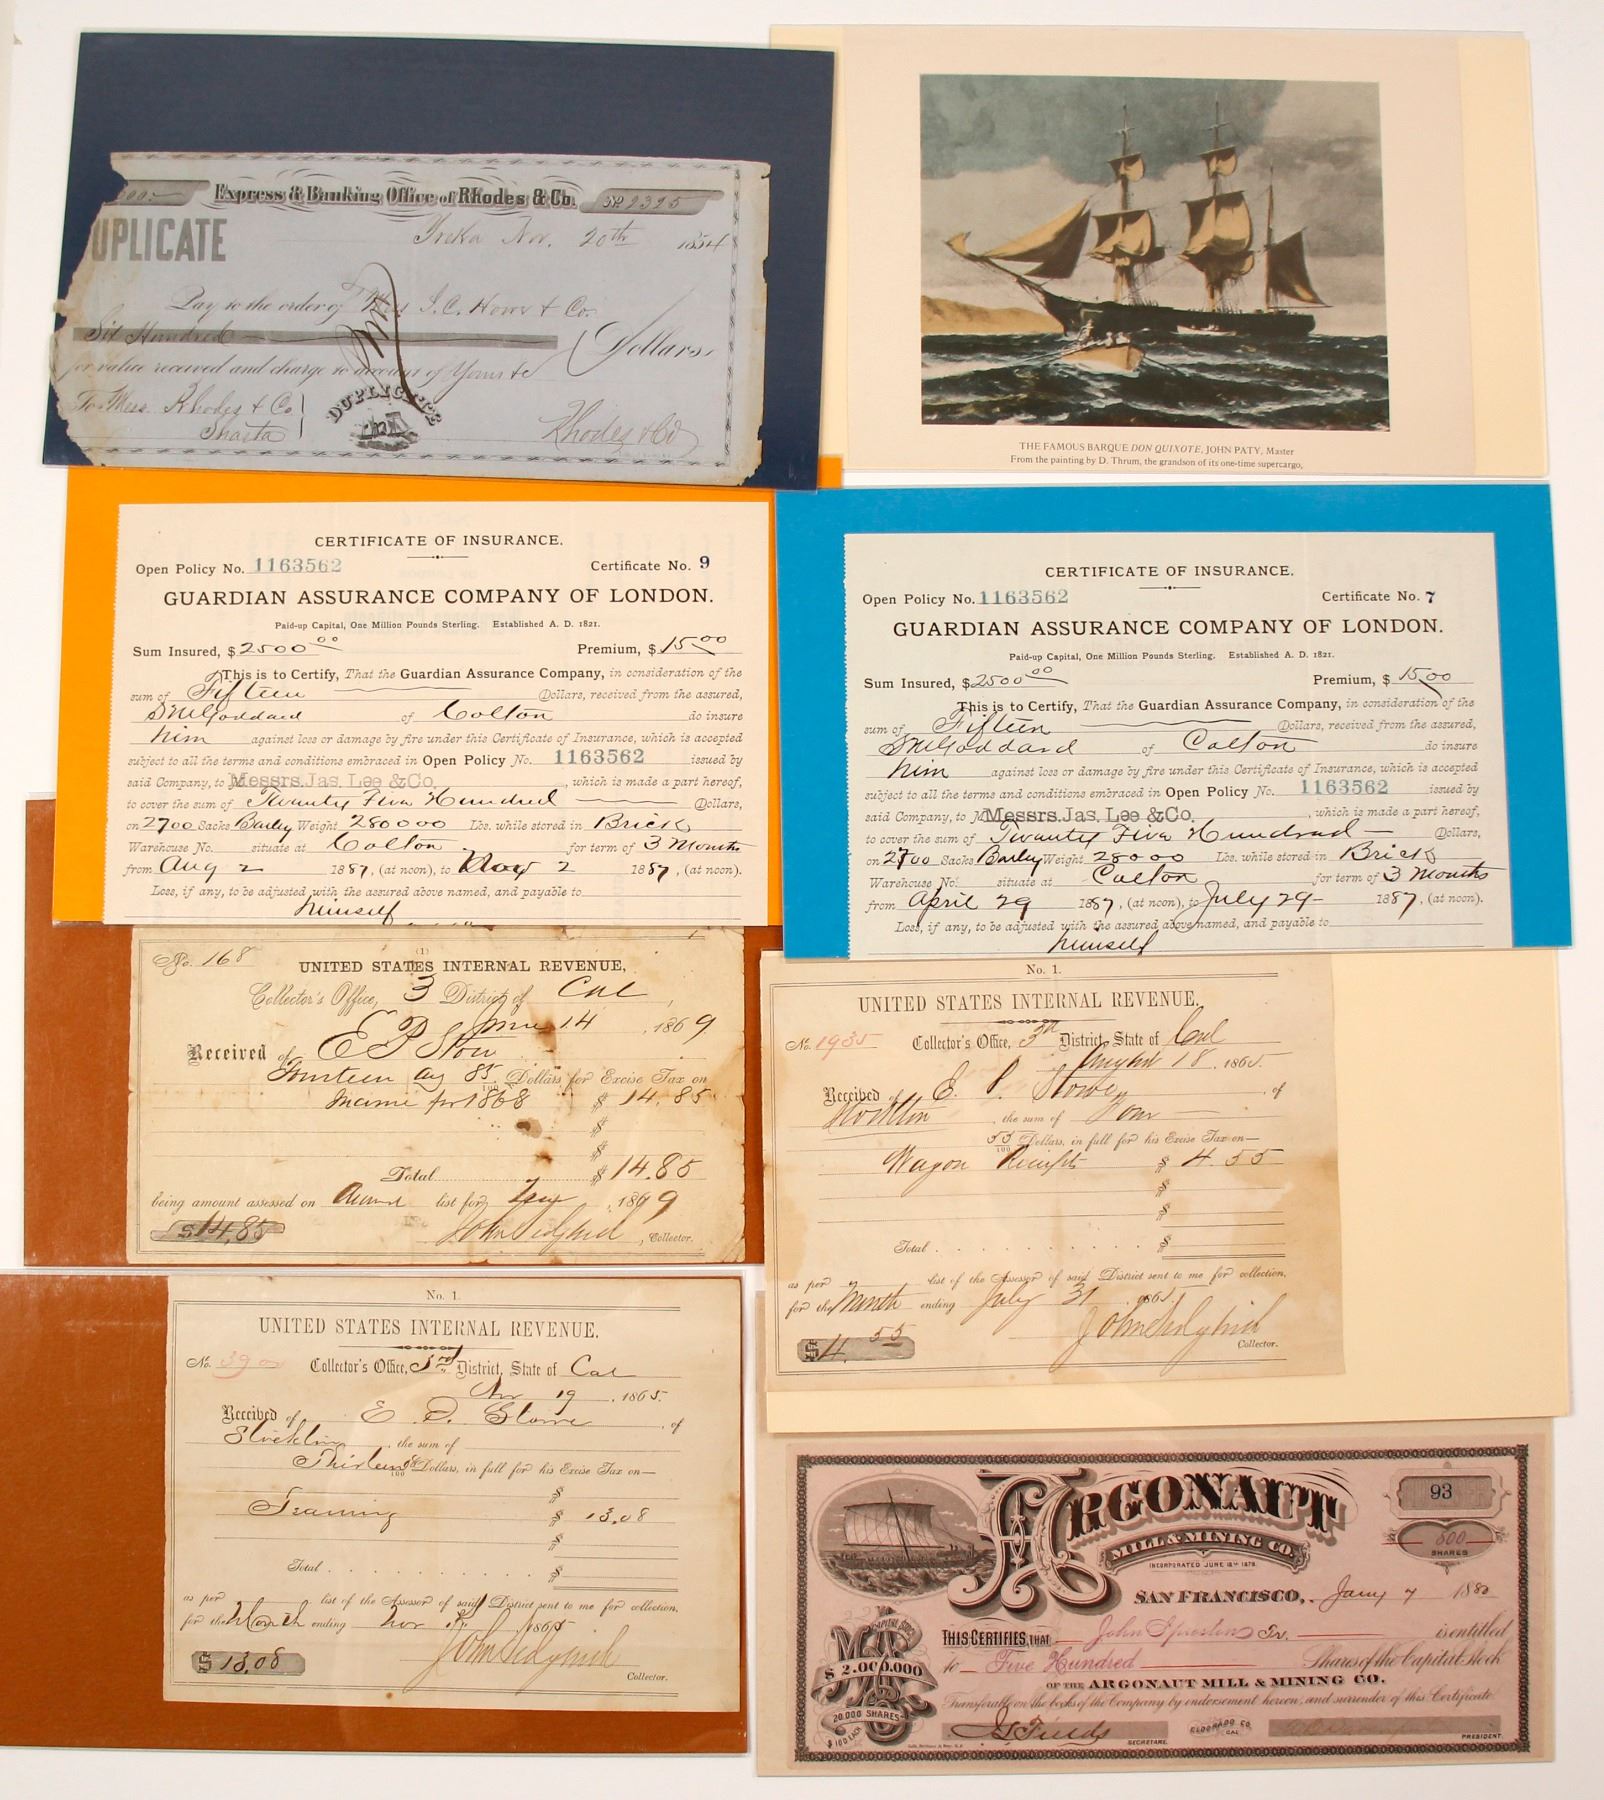 Express & Banking Office of Rhodes & Co. No. 2325
UPLICATE
Yreka Nov. 20th 1854
Pay to the order of Mess J.C. Howe & Co.
Six Hundred Dollars
for value received and charge to account of Yours &c
To Mess. Rhodes & Co
Shasta
DUPLICATE
Rhodes & Co
THE FAMOUS BARQUE DON QUIXOTE, JOHN PATY, Master
From the painting by D. Thrum, the grandson of its one-time supercargo,
CERTIFICATE OF INSURANCE.
Open Policy No. 1163562 Certificate No. 9
GUARDIAN ASSURANCE COMPANY OF LONDON.
Paid-up Capital, One Million Pounds Sterling. Established A. D. 1821.
Sum Insured, $2500.00 Premium, $15.00
This is to Certify, That the Guardian Assurance Company, in consideration of the
sum of Fifteen Dollars, received from the assured,
Goddard of Colton do insure
him against loss or damage by fire under this Certificate of Insurance, which is accepted
subject to all the terms and conditions embraced in Open Policy No. 1163562 issued by
said Company, to Messrs. Jas. Lee & Co. , which is made a part hereof,
to cover the sum of Twenty Five Hundred Dollars,
on 2700 Sacks Barley Weight 280000 Lbs. while stored in Brick
Warehouse No. situate at Colton for term of 3 Months
from Aug 2 1887, (at noon), to Nov 2 1887, (at noon).
Loss, if any, to be adjusted with the assured above named, and payable to
himself
CERTIFICATE OF INSURANCE.
Open Policy No. 1163562 Certificate No. 7
GUARDIAN ASSURANCE COMPANY OF LONDON.
Paid-up Capital, One Million Pounds Sterling. Established A. D. 1821.
Sum Insured, $2500.00 Premium, $15.00
This is to Certify, That the Guardian Assurance Company, in consideration of the
sum of Fifteen Dollars, received from the assured,
Goddard of Colton do insure
him against loss or damage by fire under this Certificate of Insurance, which is accepted
subject to all the terms and conditions embraced in Open Policy No. 1163562 issued by
said Company, to Messrs. Jas. Lee & Co. , which is made a part hereof,
to cover the sum of Twenty Five Hundred Dollars,
on 2700 Sacks Barley Weight 28000 Lbs. while stored in Brick
Warehouse No. situate at Colton for term of 3 Months
from April 29 1887, (at noon), to July 29 1887, (at noon).
Loss, if any, to be adjusted with the assured above named, and payable to
himself
No. 168 (1)
UNITED STATES INTERNAL REVENUE,
Collector's Office, 3 District of Cal,
14, 1869
Received of E P Stow
Fourteen 85/100 Dollars for Excise Tax on
Income for 1868 $ 14.85
$
$
Total $ 14.85
being amount assessed on Annual list for 1869
$14.85 John Sedgwick, Collector.
No. 1.
UNITED STATES INTERNAL REVENUE.
No. 1935 Collector's Office, 3d District, State of Cal
August 18, 1865.
Received of E. P. Stowe, of
Stockton, the sum of Four
55/100 Dollars, in full for his Excise Tax on—
Wagon Receipts $ 4.55
$
$
Total $
as per list of the Assessor of said District sent to me for collection,
for the Month ending July 31, 1865.
$4.55 John Sedgwick
Collector.
No. 1.
UNITED STATES INTERNAL REVENUE.
No. Collector's Office, 3rd District, State of Cal
Nov 19, 1865.
Received of E P. Stowe, of
Stockton, the sum of
Thirteen 08/100 Dollars, in full for his Excise Tax on—
$
Teaming $ 13.08
$
Total $
as per list of the Assessor of said District sent to me for collection,
for the Month ending Nov 1865
$13.08 John Sedgwick
Collector.
ARGONAUT
MILL & MINING CO.
INCORPORATED JUNE 18TH 1878.
93
500
SHARES
SAN FRANCISCO, Jany 7 1880
THIS CERTIFIES THAT John Jr. is entitled
to Five Hundred Shares of the Capital Stock
OF THE ARGONAUT MILL & MINING CO.
Transferable on the books of the Company by endorsement hereon, and surrender of this Certificate
CAPITAL STOCK
$2.000.000
20.000 SHARES
$100 EACH
J Fields SECRETARY. ELDORADO CO. CAL. PRESIDENT.